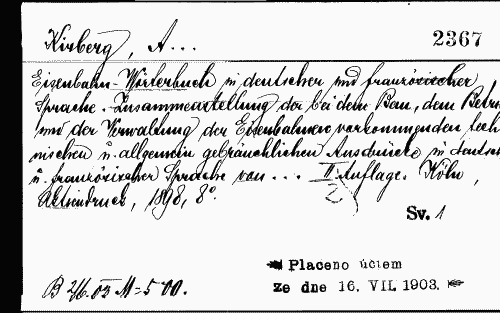 Kirberg, A... 2367
Eisenbahn-Wörterbuch in deutscher und französischer
Sprache. Zusammenstellung der bei dem Bau, dem Betri
und der Verwaltung der Eisenbahnen vorkommenden tech
nischen u. allgemein gebräuchlichen Ausdrücke in deutsch
u. französischer Sprache von ... II Auflage. Köln,
2
Actiendruck, 1898, 8°.
Sv. 1
Placeno účtem
B 2/6.03 M=5 00. ze dne 16. VII. 1903.